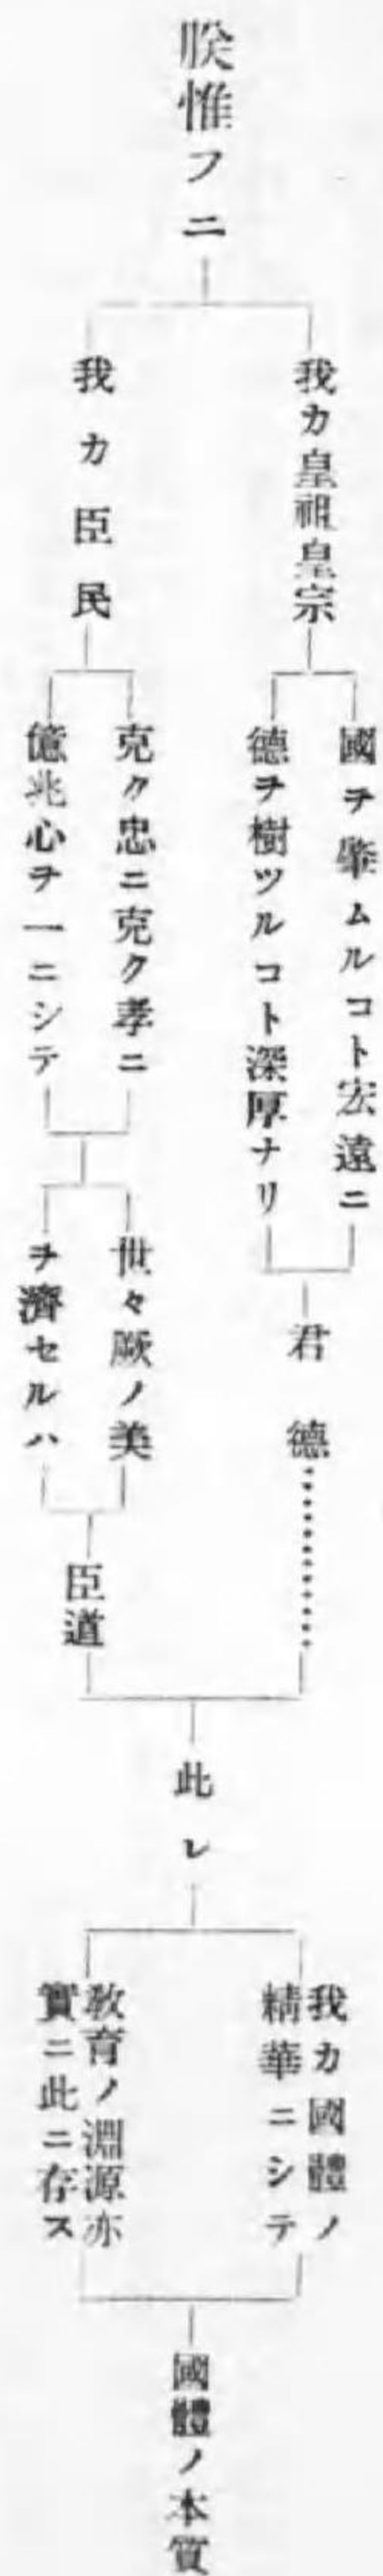 朕惟フニ
我カ皇祖皇宗
國ヲ肇ムルコト宏遠ニ
德ヲ樹ツルコト深厚ナリ
君德
我カ臣民
克ク忠ニ克ク孝ニ
億兆心ヲ一ニシテ
世々厥ノ美
ヲ濟セルハ
臣道
此レ
我カ國體ノ
精華ニシテ
敎育ノ淵源亦
實ニ此ニ存ス
國體ノ本質